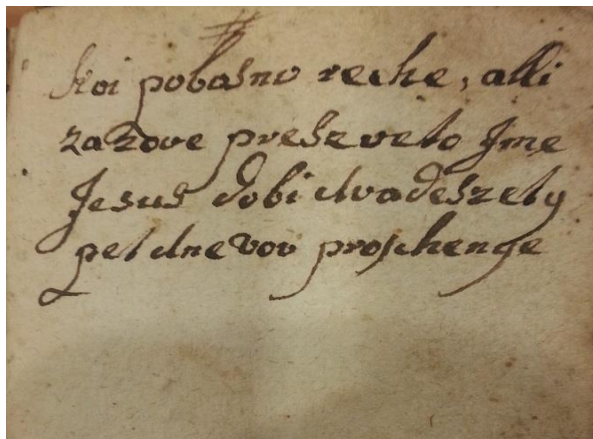 Koi pobosno reche, alli
zazove preszveto Jme
Jesus dobi dvadeszety
pet dnevovproschenge